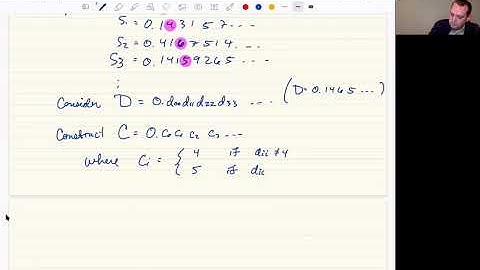 S₁ = 0.143157...
S₂ = 0.41667514...
S₃ = 0.14159265...
⋮
Consider D = 0.d₀₀d₁₁d₂₂d₃₃ ... (D=0.1465...)
Construct C = 0.C₀C₁C₂C₃...
where Cᵢ = { 4 if dᵢᵢ≠4
5 if dᵢᵢ